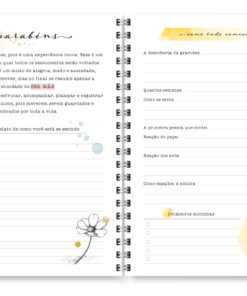 parabéns
pois é uma experiência única. Esse é um
qual todos os sentimentos estão voltados
um misto de alegria, medo e ansiedade,
mas no final se resume apenas a
de SER MÃE
desfrutar, acompanhar, planejar e registrar
pois merecem serem guardados e
relato de como você está se sentindo
como tudo começou
A descoberta da gravidez
Quantas semanas
Como se sente
A primeira pessoa que soube
Reação do papai
Reação dos avós
Como espalhou a notícia
Primeiros sintomas